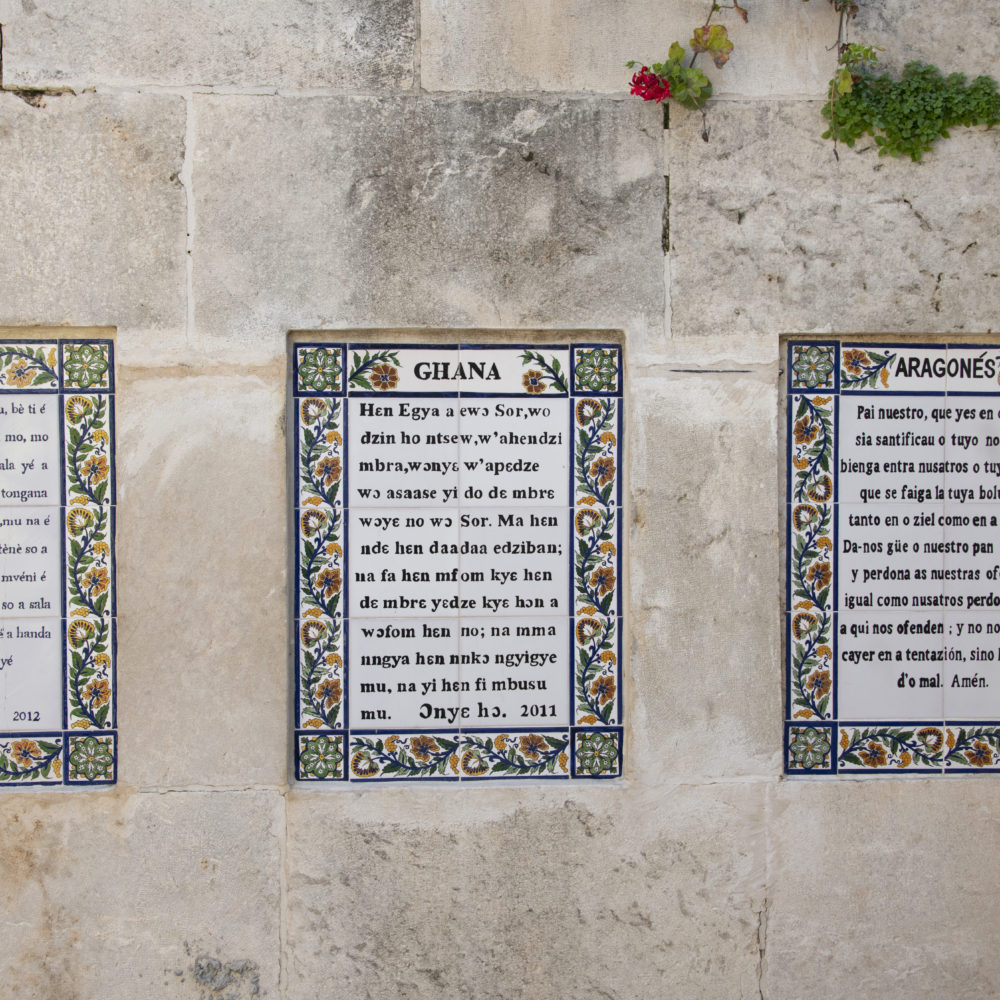 u, bè ti é
mo, mo
ala yé a
tongana
,mu na é
tènè so a
mvéni é
so a sala
é a handa
yé
2012
GHANA
Hɛn Egya a ewɔ Sor,wo
dzin ho ntsew,w'ahendzi
mbra,wɔnyɛ w'apɛdze
wɔ asaase yi do dɛ mbrɛ
wɔyɛ no wɔ Sor. Ma hɛn
ndɛ hɛn daadaa edziban;
na fa hɛn mfom kyɛ hɛn
dɛ mbrɛ yɛdze kyɛ hɔn a
wɔfom hɛn no; na mma
nngya hɛn nnkɔ ngyigye
mu, na yi hɛn fi mbusu
mu. Ɔnyɛ hɔ. 2011
ARAGONÉS
Pai nuestro, que yes en
sia santificau o tuyo no
bienga entra nusatros o tuy
que se faiga la tuya bolu
tanto en o ziel como en a
Da-nos güe o nuestro pan
y perdona as nuestras ofe
igual como nusatros perdo
a qui nos ofenden ; y no no
cayer en a tentazión, sino l
d'o mal. Amén.